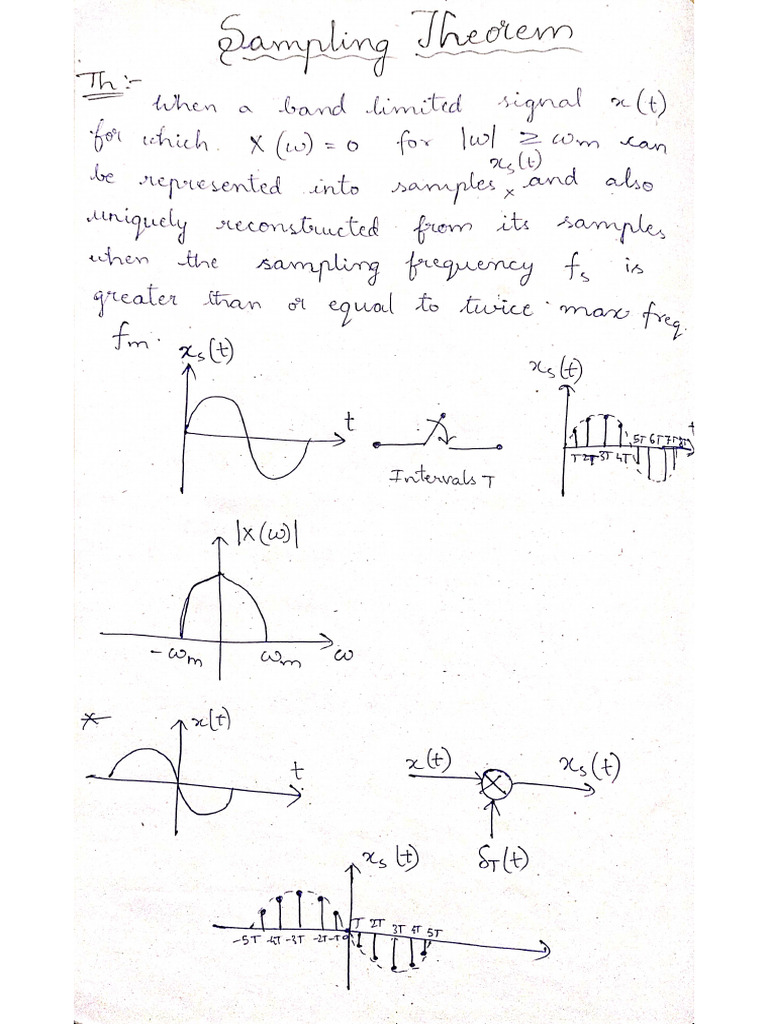 Sampling Theorem
Th :-
When a band limited signal x(t)
for which X(ω) = 0 for |ω| ≥ ωm can
xs(t)
be represented into samples x and also
uniquely reconstructed from its samples
when the sampling frequency fs is
greater than or equal to twice max freq.
fm.
xs(t)
t
Intervals T
xs(t)
t
5T 6T 7T 8T
T 2T 3T 4T
|X(ω)|
-ωm ωm ω
x(t)
t
x(t) xs(t)
δT(t)
xs(t)
T 2T 3T 4T 5T
-5T -4T -3T -2T -T 0